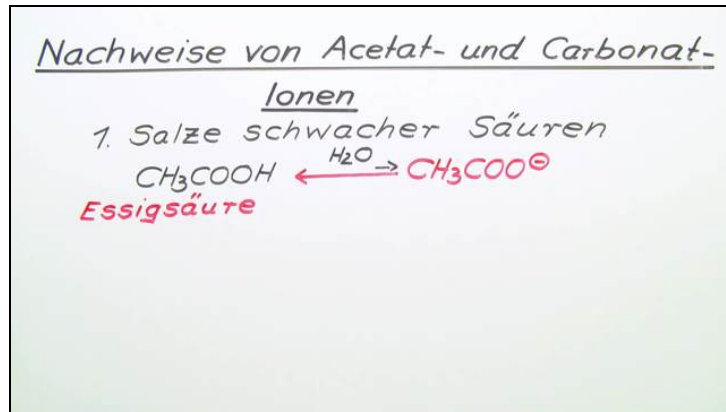 Nachweise von Acetat- und Carbonat-
Ionen
1. Salze schwacher Säuren
CH₃COOH ⟵ H₂O → CH₃COO⊖
Essigsäure